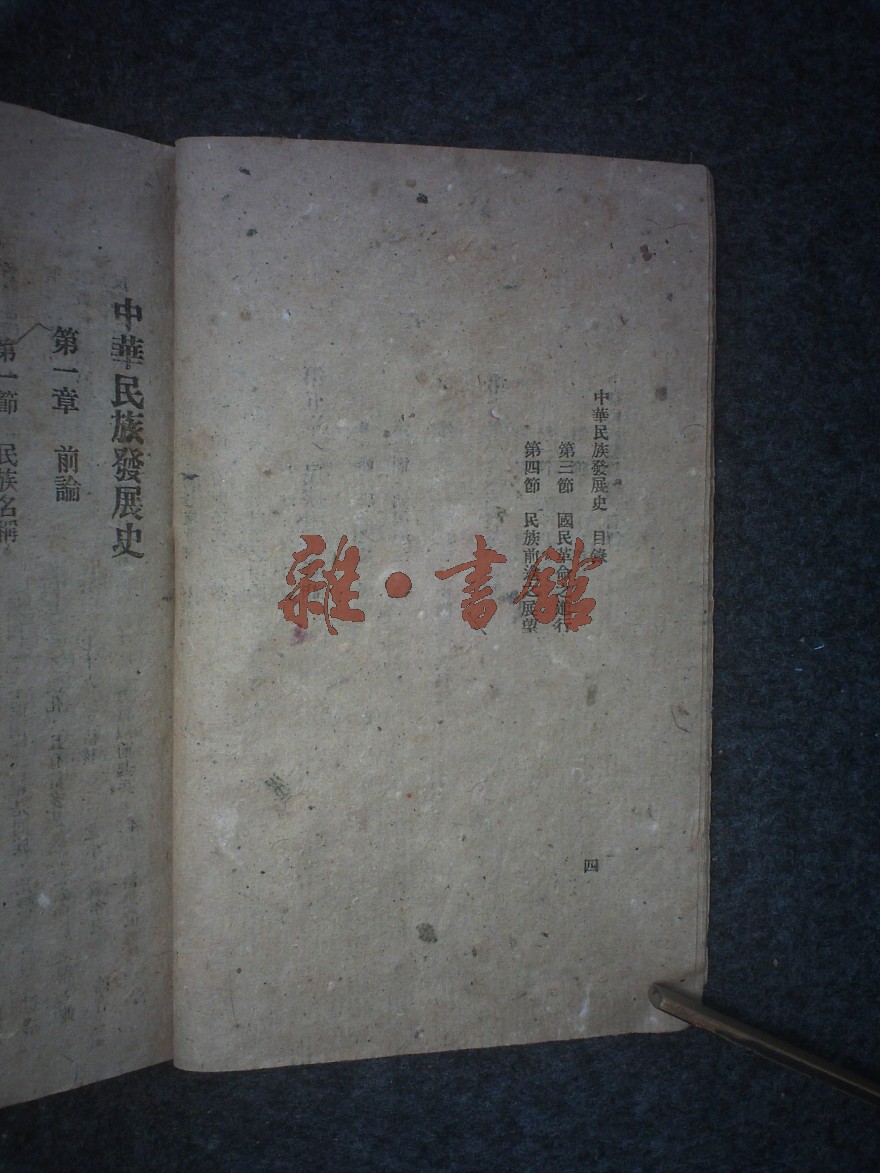 中華民族發展史　目錄
第三節　國民革命之進行
第四節　民族前途之展望
四
中華民族發展史
第一章　前論
第一節　民族名稱
雜·書館